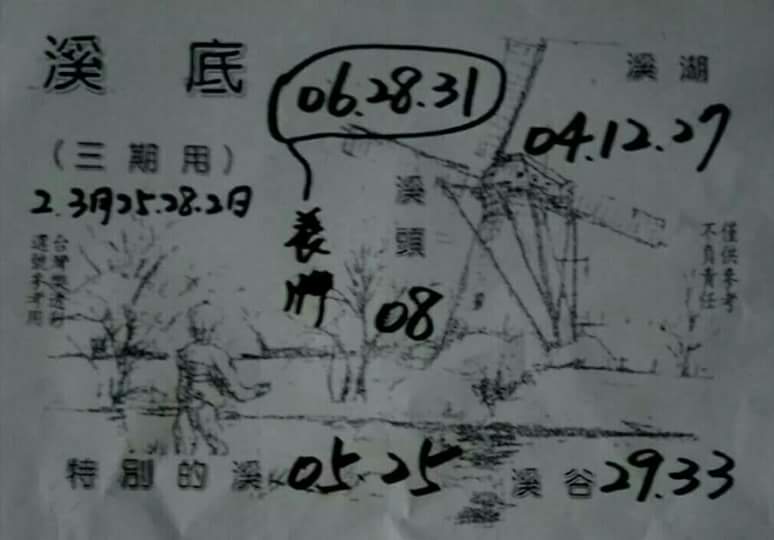 溪底
06.28.31
溪湖
04.12.27
(三期用)
2.3月25.28.2日
溪頭
08
養牌
台灣樂透彩
選號參考用
僅供參考
不負責任
特別的溪 05.25
溪谷 29.33